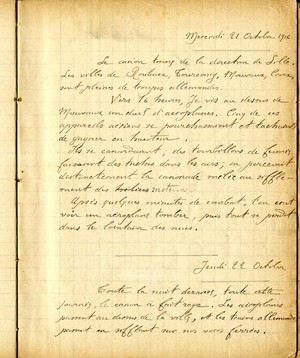 Mercredi 21 Octobre 1916
Le canon tonne de la direction de Lille.
Les villes de Roubaix, Tourcoing, Mouvaux, Croix,
sont pleines de troupes allemandes.
Vers 16 heures, je vis au dessus de
Mouvaux un duel d'aéroplanes. Cinq de ces
appareils aériens se pourchassaient et tachaient
de gagner en hauteur.
Ils se canardaient, des tourbillons de fumée
faisaient des dans les airs, on percevait
distinctement la canonade mêlée au souffle-
ment des moteurs.
Après quelques minutes de combat, l'on crut
voir un aéroplane tomber, puis tout se perdit
dans le lointain des nues.
Jeudi 22 Octobre
Toute la nuit dernière, toute cette
journée, le canon a fait rage. Les aéroplanes
passent au dessus de la ville, et les trains allemands
passent en sifflant sur nos voies ferrées.